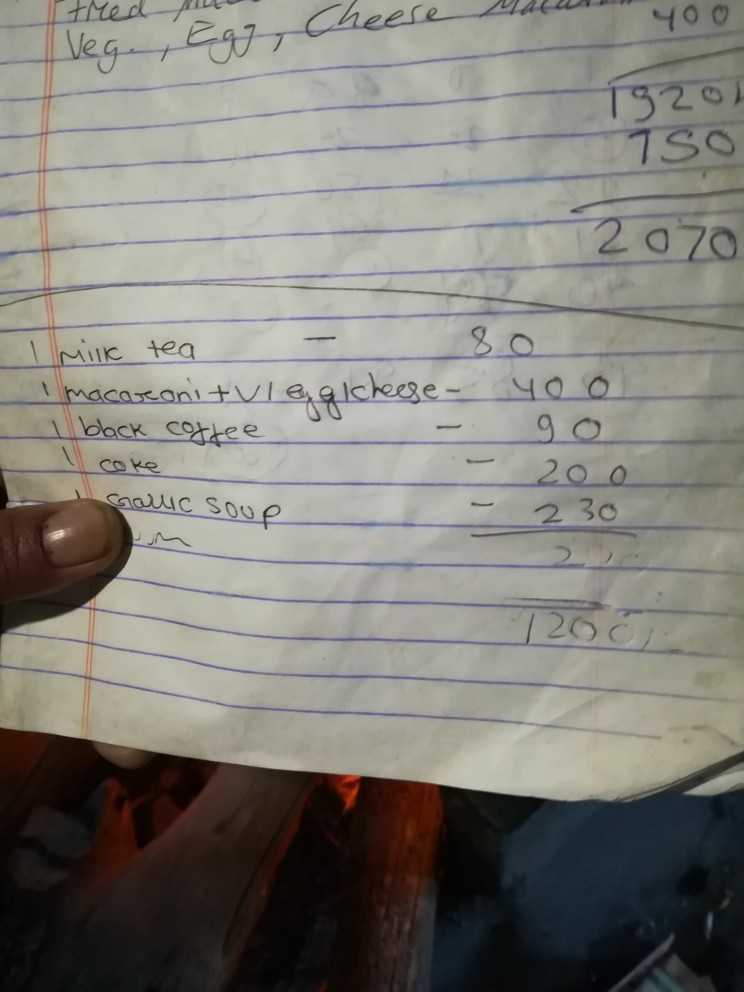 Veg., Egg, Cheese
400
1920
150
2070
1 milk tea - 80
1 macaroni + V/egg/cheese - 400
1 black coffee - 90
1 coke - 200
1 Garlic soup - 230
1200